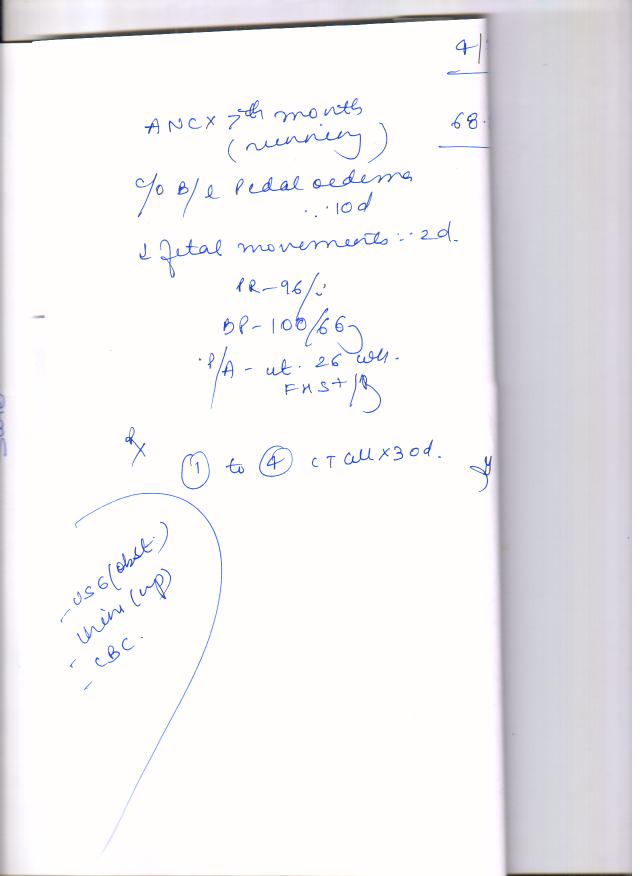 4/
68.
ANC x 7th month
(running)
c/o B/L Pedal oedema
∵ 10d
↓ fetal movements ∵ 2d.
PR-96/
BP-100/66
P/A - ut. 26 wks.
FHS+/R
Rx
① to ④ CT all x 30d.
- USG (obst.)
- Urine (
- CBC.